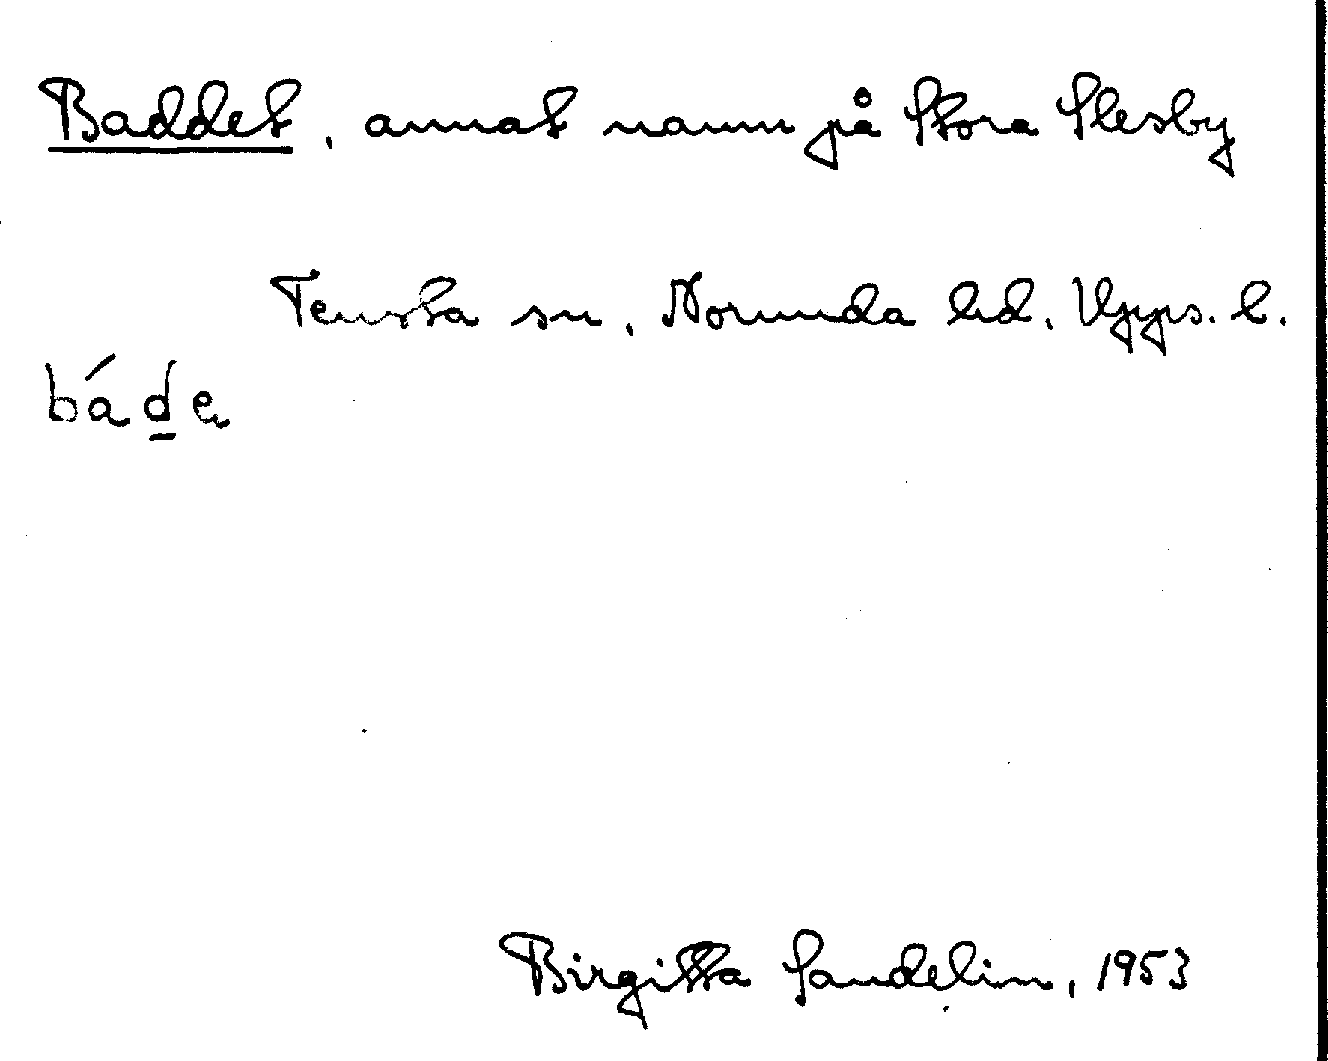 Baddet, annat namn på Stora Slesby
Tensta sn, Norunda hd. Upps. l.
báde
Birgitta Sandelin, 1953